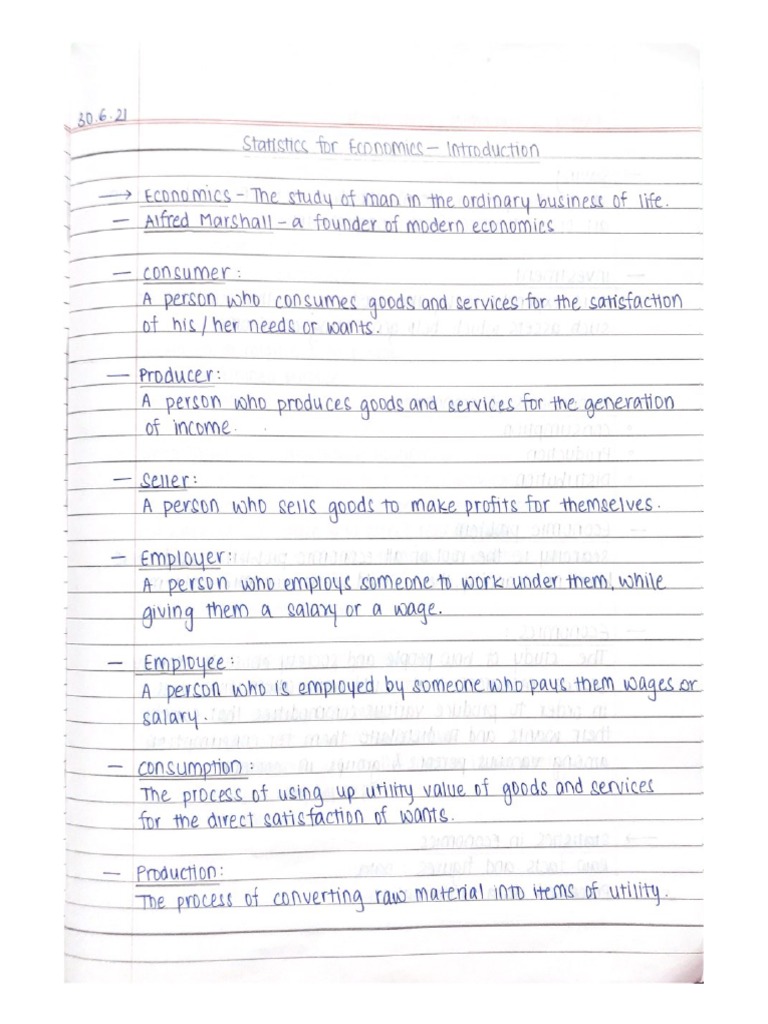 30.6.21
Statistics for Economics – Introduction
→ Economics – The study of man in the ordinary business of life.
– Alfred Marshall – a founder of modern economics
– consumer:
A person who consumes goods and services for the satisfaction
of his/her needs or wants.
– Producer:
A person who produces goods and services for the generation
of income.
– Seller:
A person who sells goods to make profits for themselves.
– Employer:
A person who employs someone to work under them, while
giving them a salary or a wage.
– Employee:
A person who is employed by someone who pays them wages or
salary.
– Consumption:
The process of using up utility value of goods and services
for the direct satisfaction of wants.
– Production:
The process of converting raw material into items of utility.